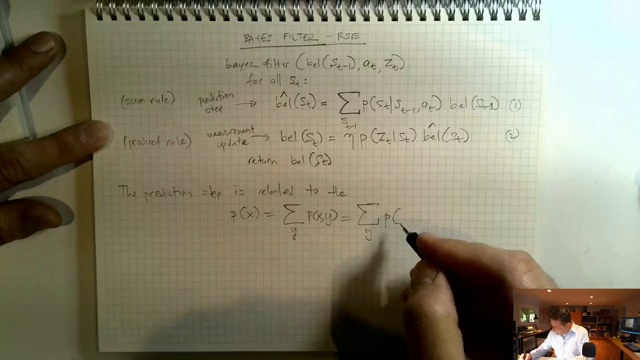 BAYES FILTER - RSE
bayes filter (bel(S_{t-1}), a_t, z_t)
for all S_t:
(sum rule) prediction step → \hat{bel}(S_t) = \sum_{S_{t-1}} p(S_t | S_{t-1}, a_t) bel(S_{t-1}) (1)
(product rule) measurement update → bel(S_t) = η p(z_t | S_t) \hat{bel}(S_t) (2)
return bel(S_t)
The prediction step is related to the
p(x) = \sum_y p(x,y) = \sum_y p(